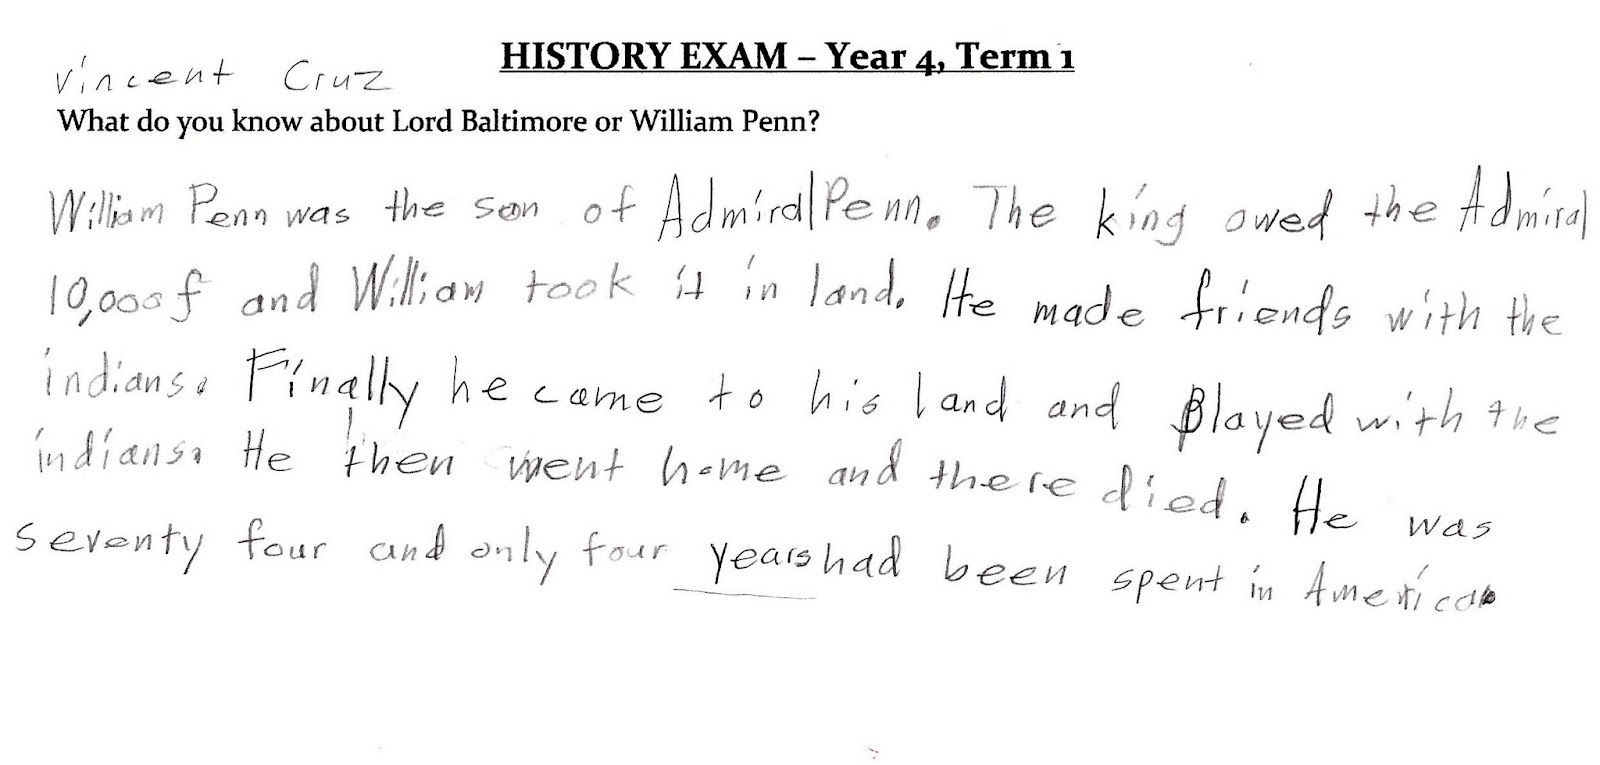 HISTORY EXAM – Year 4, Term 1
Vincent Cruz
What do you know about Lord Baltimore or William Penn?
William Penn was the son of Admiral Penn. The king owed the Admiral
10,000£ and William took it in land. He made friends with the
indians. Finally he came to his land and played with the
indians. He then went home and there died. He was
seventy four and only four years had been spent in America.